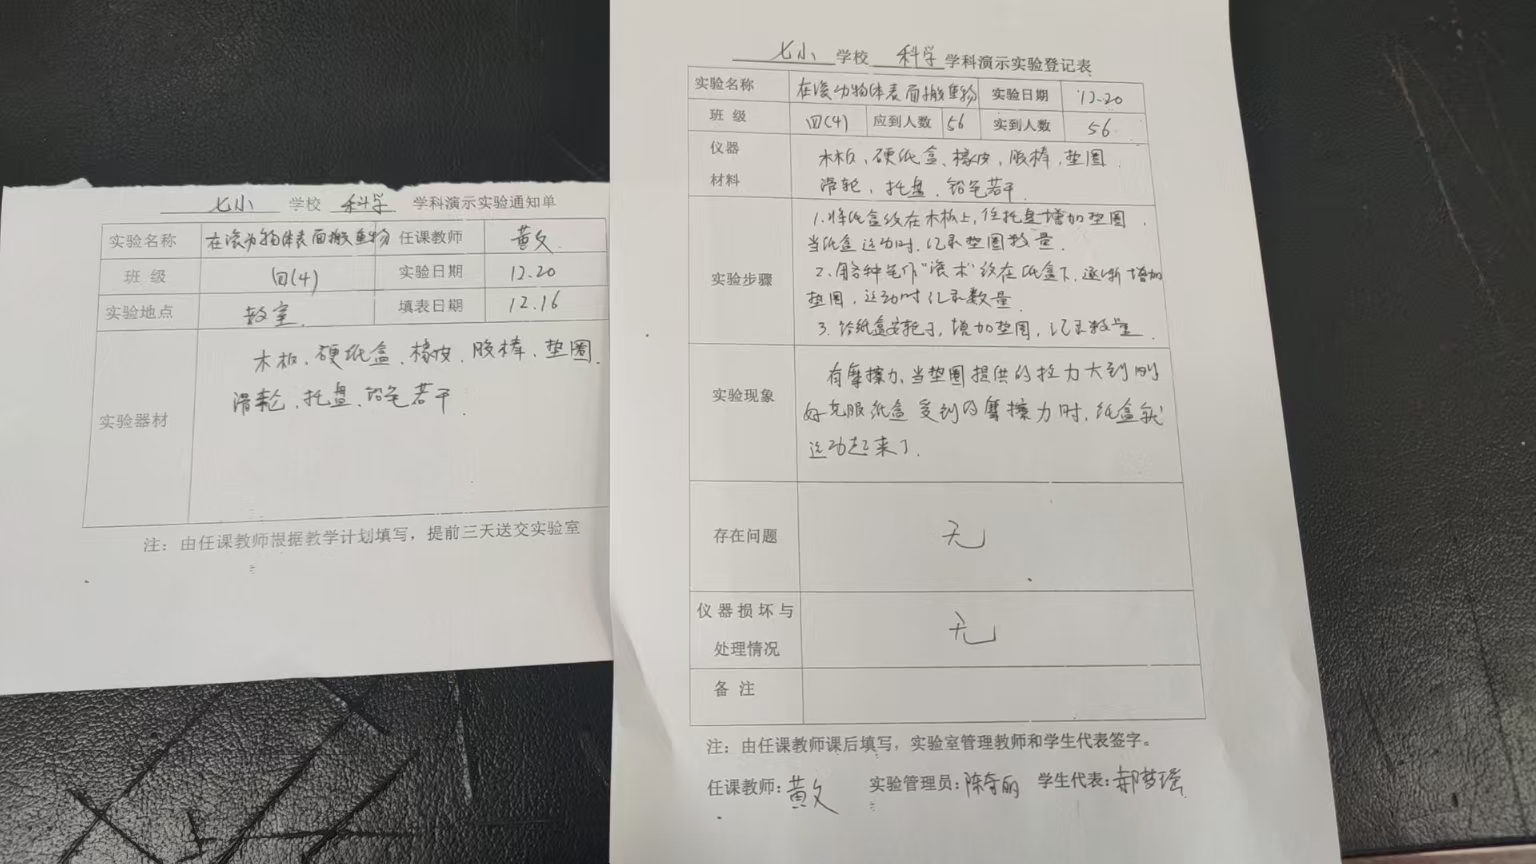 七小 学校 科学 学科演示实验通知单
实验名称 在滚动物体表面搬重物 任课教师 黄文
班 级 四(4) 实验日期 12.20
实验地点 教室. 填表日期 12.16
实验器材
木板、硬纸盒、橡皮、胶棒、垫圈
滑轮、托盘、铅笔若干.
注：由任课教师根据教学计划填写，提前三天送交实验室
七小 学校 科学 学科演示实验登记表
实验名称 在滚动物体表面搬重物 实验日期 12.20
班 级 四(4) 应到人数 56 实到人数 56
仪器
材料
木板、硬纸盒、橡皮、胶棒、垫圈
滑轮、托盘、铅笔若干
实验步骤
1.将纸盒放在木板上,往托盘增加垫圈,
当纸盒运动时,记录垫圈数量.
2.用各种笔作"滚木"放在纸盒下,逐渐增加
垫圈,运动时记录数量.
3.给纸盒安轮子,增加垫圈,记录数量.
实验现象
有摩擦力,当垫圈提供的拉力大到刚
好克服纸盒受到的摩擦力时,纸盒就
运动起来了.
存在问题 无
仪器损坏与
处理情况
无
备 注
注：由任课教师课后填写，实验室管理教师和学生代表签字。
任课教师：黄文 实验管理员：陈奇丽 学生代表：郝梦瑶